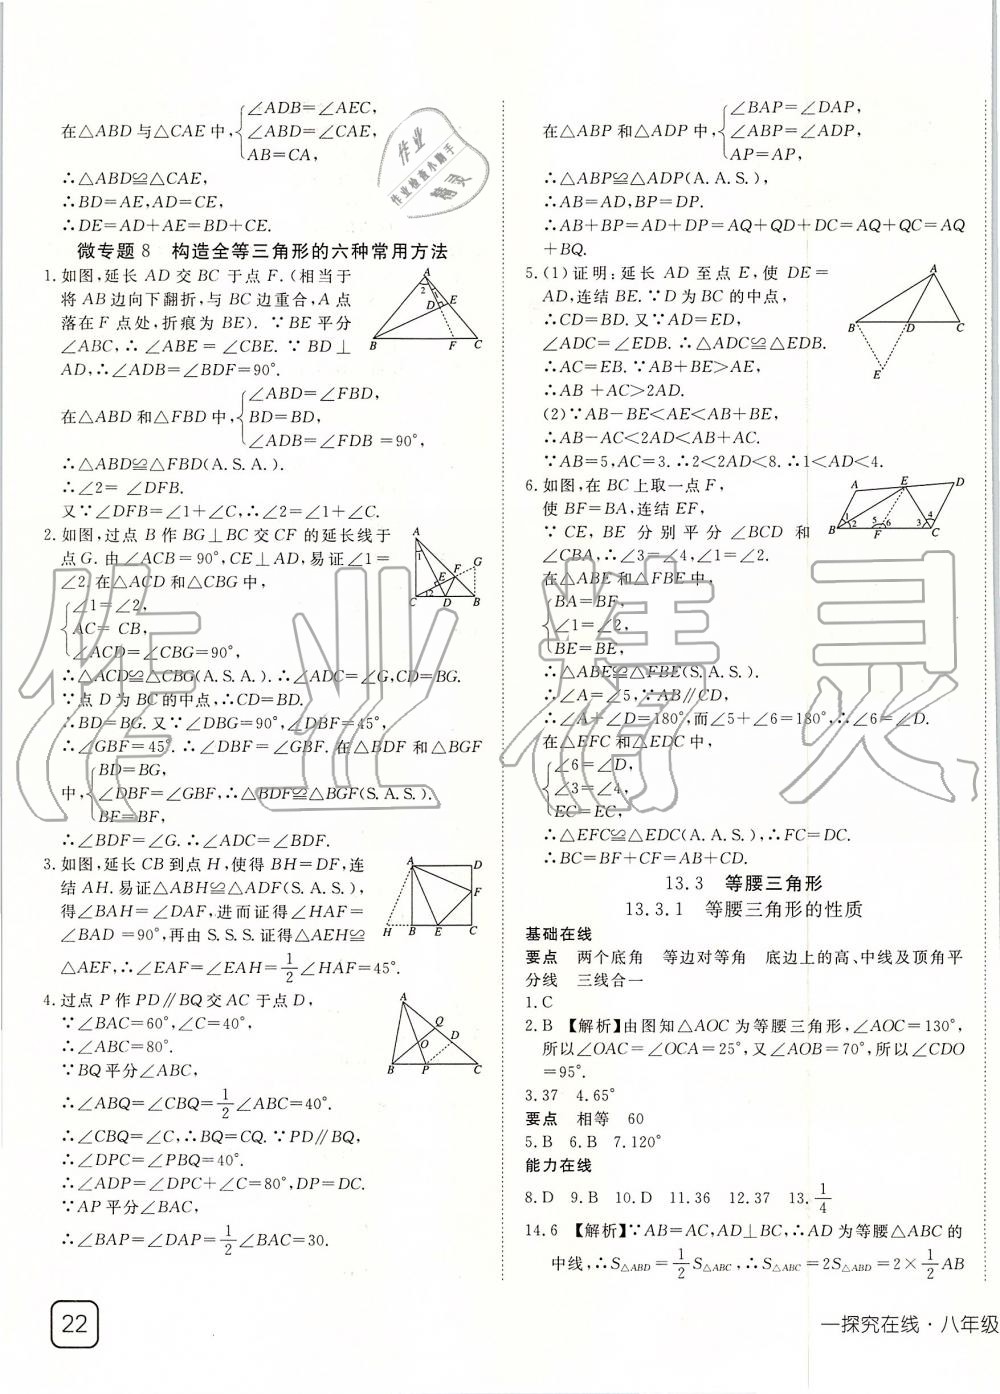 ∠ADB=∠AEC,
在△ABD与△CAE中,{∠ABD=∠CAE,
AB=CA,
∴△ABD≌△CAE,
∴BD=AE,AD=CE,
∴DE=AD+AE=BD+CE.
微专题8 构造全等三角形的六种常用方法
1.如图,延长AD交BC于点F.(相当于
将AB边向下翻折,与BC边重合,A点
落在F点处,折痕为BE). ∵BE平分
∠ABC,∴∠ABE=∠CBE. ∵BD⊥
AD,∴∠ADB=∠BDF=90°.
∠ABD=∠FBD,
在△ABD和△FBD中,{BD=BD,
∠ADB=∠FDB=90°,
∴△ABD≌△FBD(A.S.A.).
∴∠2=∠DFB.
又∵∠DFB=∠1+∠C,∴∠2=∠1+∠C.
2.如图,过点B作BG⊥BC交CF的延长线于
点G.由∠ACB=90°,CE⊥AD,易证∠1=
∠2.在△ACD和△CBG中,
{∠1=∠2,
AC=CB,
∠ACD=∠CBG=90°,
∴△ACD≌△CBG(A.S.A.).∴∠ADC=∠G,CD=BG.
∵点D为BC的中点,∴CD=BD.
∴BD=BG.又∵∠DBG=90°,∠DBF=45°,
∴∠GBF=45°.∴∠DBF=∠GBF.在△BDF和△BGF
BD=BG,
中,{∠DBF=∠GBF,∴△BDF≌△BGF(S.A.S.).
BF=BF,
∴∠BDF=∠G.∴∠ADC=∠BDF.
3.如图,延长CB到点H,使得BH=DF,连
结AH.易证△ABH≌△ADF(S.A.S.),
得∠BAH=∠DAF,进而证得∠HAF=
∠BAD=90°,再由S.S.S.证得△AEH≌
△AEF,∴∠EAF=∠EAH=1/2∠HAF=45°.
4.过点P作PD∥BQ交AC于点D,
∵∠BAC=60°,∠C=40°,
∴∠ABC=80°.
∵BQ平分∠ABC,
∴∠ABQ=∠CBQ=1/2∠ABC=40°.
∴∠CBQ=∠C,∴BQ=CQ.∵PD∥BQ,
∴∠DPC=∠PBQ=40°.
∴∠ADP=∠DPC+∠C=80°,DP=DC.
∵AP平分∠BAC,
∴∠BAP=∠DAP=1/2∠BAC=30.
22
∠BAP=∠DAP,
在△ABP和△ADP中,{∠ABP=∠ADP,
AP=AP,
∴△ABP≌△ADP(A.A.S.),
∴AB=AD,BP=DP.
∴AB+BP=AD+DP=AQ+QD+DC=AQ+QC=AQ
+BQ.
5.(1)证明:延长AD至点E,使DE=
AD,连结BE.∵D为BC的中点,
∴CD=BD.又∵AD=ED,
∠ADC=∠EDB.∴△ADC≌△EDB.
∴AC=EB.∵AB+BE>AE,
∴AB+AC>2AD.
(2)∵AB-BE<AE<AB+BE,
∴AB-AC<2AD<AB+AC.
∵AB=5,AC=3.∴2<2AD<8.∴1<AD<4.
6.如图,在BC上取一点F,
使BF=BA,连结EF,
∵CE,BE分别平分∠BCD和
∠CBA,∴∠3=∠4,∠1=∠2.
在△ABE和△FBE中,
{BA=BF,
∠1=∠2,
BE=BE,
∴△ABE≌△FBE(S.A.S.).
∴∠A=∠5,∵AB∥CD,
∴∠A+∠D=180°,而∠5+∠6=180°,∴∠6=∠D.
在△EFC和△EDC中,
{∠6=∠D,
∠3=∠4,
EC=EC,
∴△EFC≌△EDC(A.A.S.),∴FC=DC.
∴BC=BF+CF=AB+CD.
13.3 等腰三角形
13.3.1 等腰三角形的性质
基础在线
要点 两个底角 等边对等角 底边上的高、中线及顶角平
分线 三线合一
1.C
2.B 【解析】由图知△AOC为等腰三角形,∠AOC=130°,
所以∠OAC=∠OCA=25°,又∠AOB=70°,所以∠CDO
=95°.
3.37 4.65°
要点 相等 60
5.B 6.B 7.120°
能力在线
8.D 9.B 10.D 11.36 12.37 13.1/4
14.6 【解析】∵AB=AC,AD⊥BC,∴AD为等腰△ABC的
中线,∴S△ABD=1/2S△ABC,∴S△ABC=2S△ABD=2×1/2AB
一探究在线·八年级
作业
作业检查小助手
精灵
作业精灵